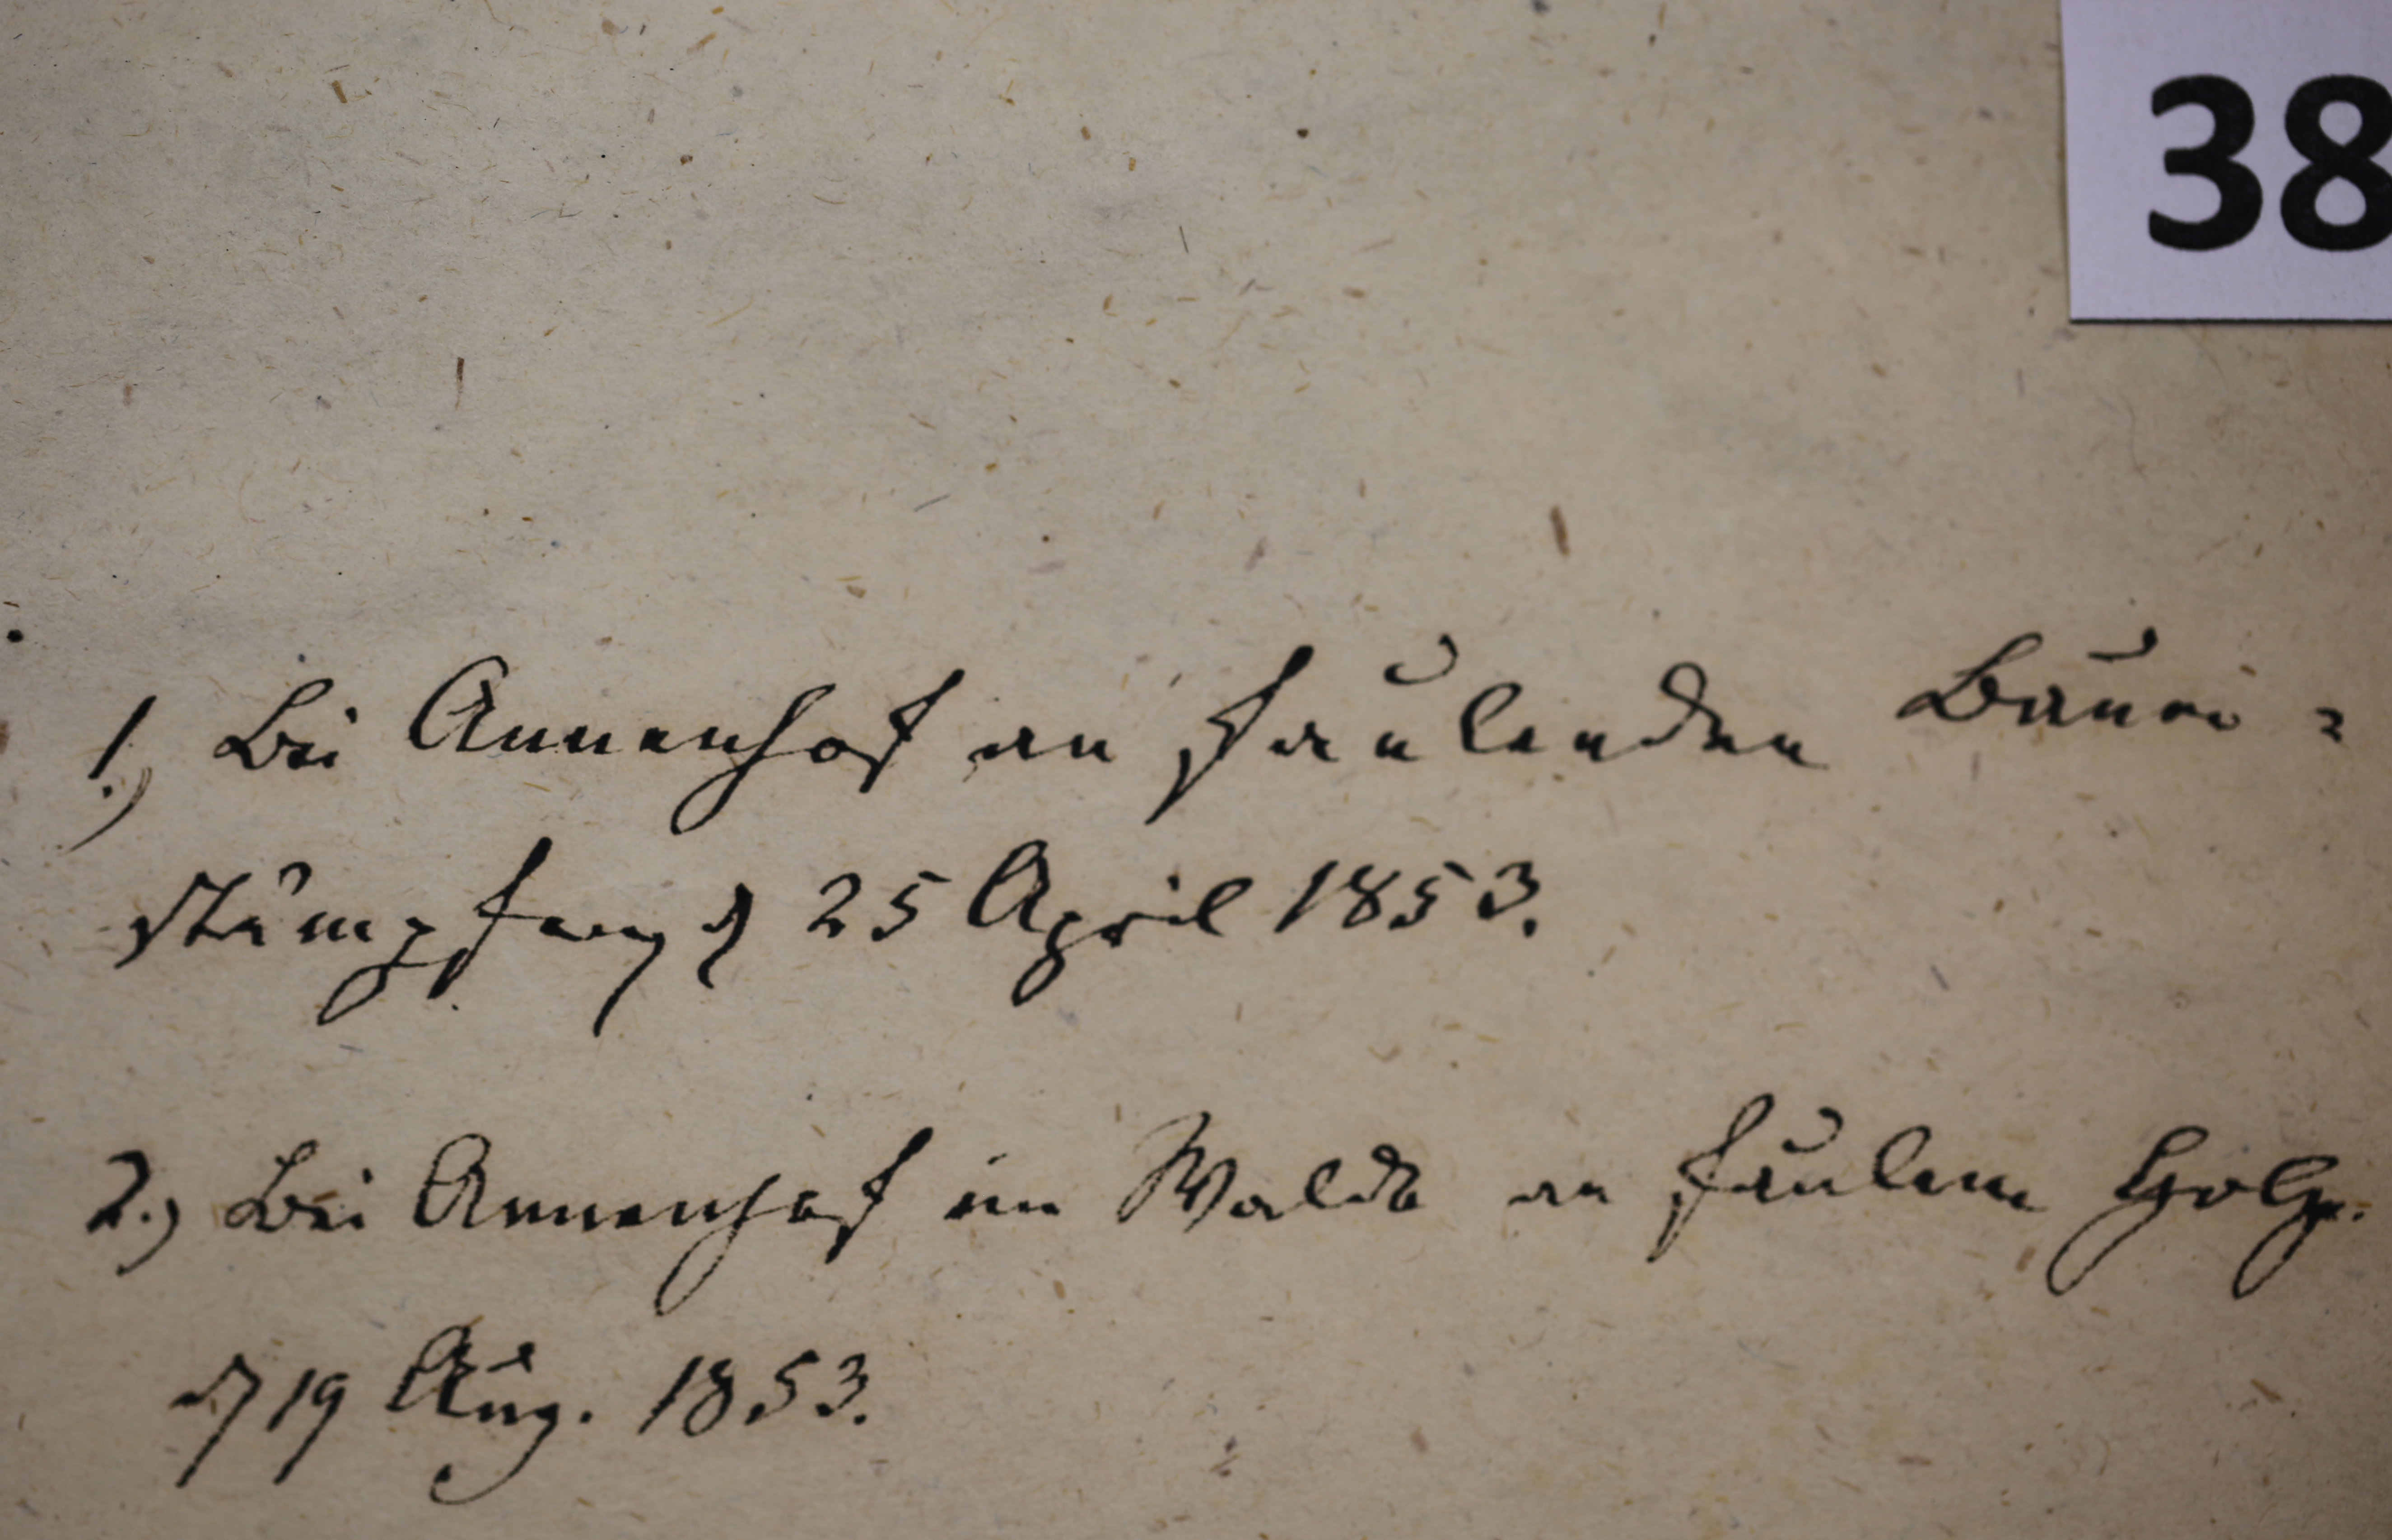 38
1.) Bei Annenhof an faulenden Baum=
stumpfen d 25 April 1853.
2.) Bei Annenhof im Walde an faulem Holze.
d 19 Aug. 1853.